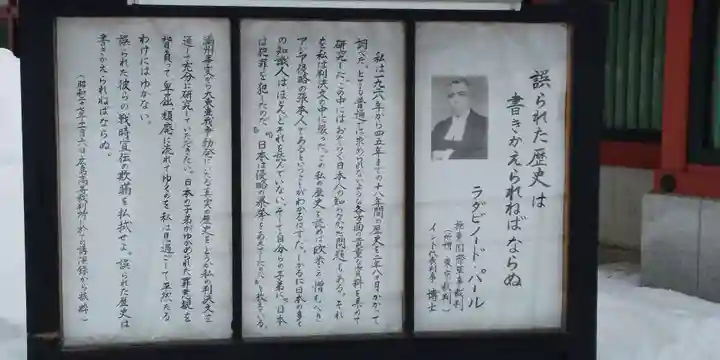 誤られた歴史は
書きかえられねばならぬ
ラダビノード・パール
極東国際軍事裁判
(俗称・東京裁判)
インド代表判事 博士
私は一九二八年から四五年までの十八年間の歴史を二年八カ月かかって
調べた。とても普通では求められないような各方面の貴重な資料を集めて
研究した。この中にはおそらく日本人の知らなかった問題もある。それ
を私は判決文の中に綴った。この私の歴史を読めば欧米こそ憎むべき
アジア侵略の張本人であるということがわかるはずだ。しかるに日本の多く
の知識人はほとんどそれを読んでいない。そして自分らの子弟に『日本
は犯罪を犯したのだ』『日本は侵略の暴挙をあえてしたのだ』と教えている。
満州事変から大東亜戦争勃発にいたる真実の歴史をどうか私の判決文を
通して充分に研究していただきたい。日本の子弟がゆがめられた罪悪感を
背負って卑屈、頽廃に流れてゆくのを私は見過ごして平然たる
わけにはゆかない。
誤られた彼らの戦時宣伝の欺瞞を払拭せよ。誤られた歴史は
書きかえられねばならぬ。
(昭和二十七年十一月六日広島高等裁判所に於ける講演録から抜粋)